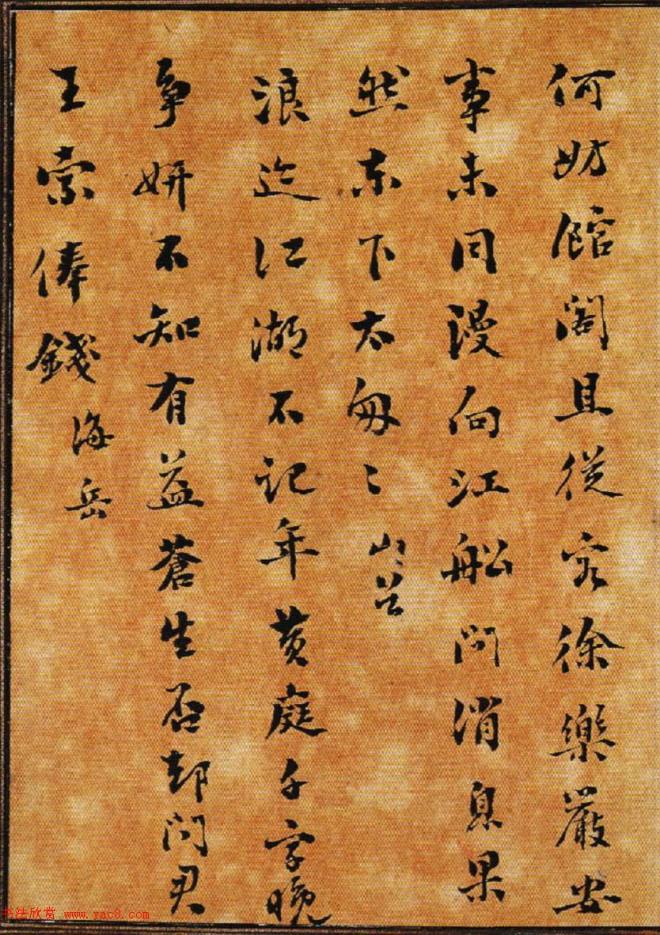 何妨館閣且從容徐樂嚴安
事未同漫向江船問消息果
然東下太匆〻 山谷
浪迹江湖不記年黄庭千字晚
争妍不知有益蒼生否却問君
王索俸錢 海岳
书法欣赏 www.yac8.com